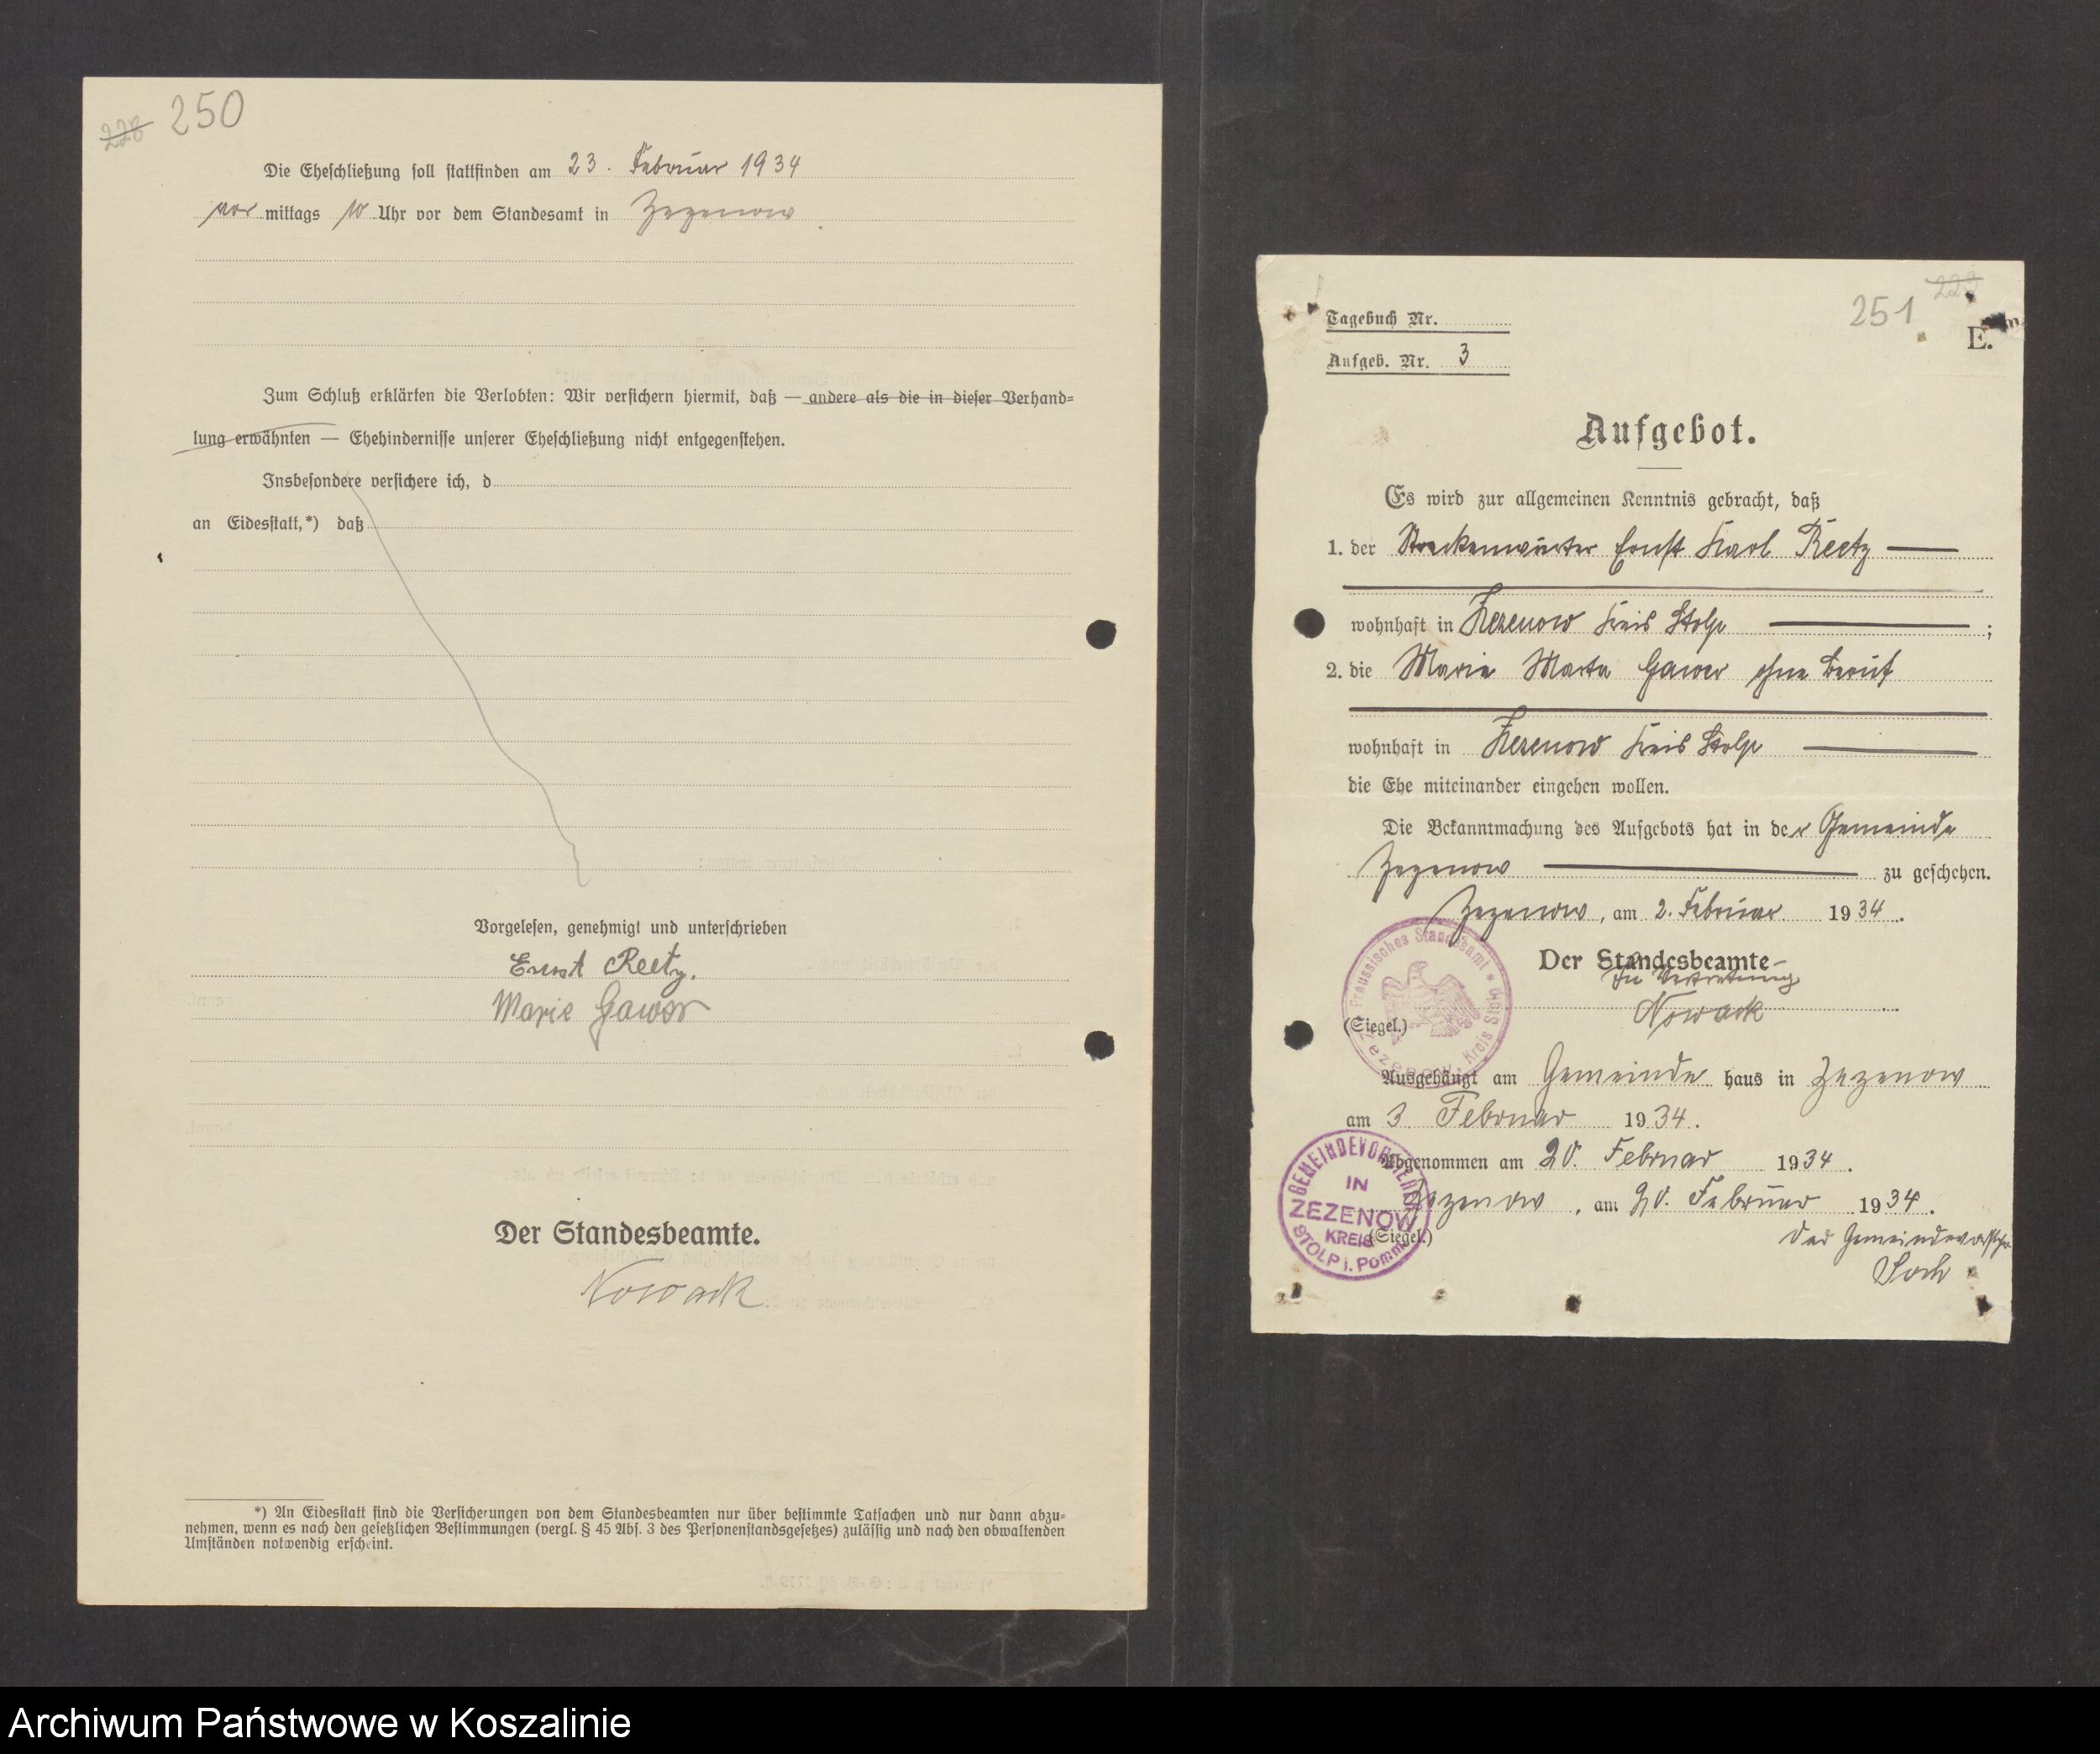 228 250
Die Eheschließung soll stattfinden am 23. Februar 1934
vor mittags 10 Uhr vor dem Standesamt in Zezenow
Zum Schluß erklärten die Verlobten: Wir versichern hiermit, daß — andere als die in dieser Verhand=
lung erwähnten — Ehehindernisse unserer Eheschließung nicht entgegenstehen.
Insbesondere versichere ich, d
an Eidesstatt,*) daß
Vorgelesen, genehmigt und unterschrieben
Ernst Reetz.
Marie Gawer
Der Standesbeamte.
Nowack
*) An Eidesstatt sind die Versicherungen von dem Standesbeamten nur über bestimmte Tatsachen und nur dann abzu=
nehmen, wenn es nach den gesetzlichen Bestimmungen (vergl. § 45 Abs. 3 des Personenstandsgesetzes) zulässig und nach den obwaltenden
Umständen notwendig erscheint.
251 229
Tagebuch Nr.
E.
Aufgeb. Nr. 3
Aufgebot.
Es wird zur allgemeinen Kenntnis gebracht, daß
1. der Streckenwärter Ernst Karl Reetz
wohnhaft in Zezenow Kreis Stolp ;
2. die Marie Marta Gawer ohne Beruf
wohnhaft in Zezenow Kreis Stolp
die Ehe miteinander eingehen wollen.
Die Bekanntmachung des Aufgebots hat in der Gemeinde
Zezenow zu geschehen.
Zezenow, am 2. Februar 1934.
Preussisches Standesamt * Zezenow, Kreis Stolp
Der Standesbeamte
In Vertretung
Nowack
(Siegel.)
Ausgehängt am Gemeinde haus in Zezenow
am 3 Februar 1934.
Abgenommen am 20. Februar 1934.
Zezenow, am 20. Februar 1934.
GEMEINDEVORSTEHER
IN
ZEZENOW
KREIS
STOLP i. Pomm.
(Siegel.)
Der Gemeindevorsteher
Archiwum Państwowe w Koszalinie